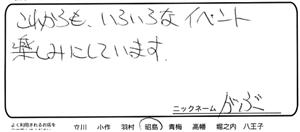 これからも、いろいろなイベント
楽しみにしています。
ニックネーム がぶ
よく利用されるお店を
立川 小作 羽村 昭島 青梅 高幡 堀之内 八王子